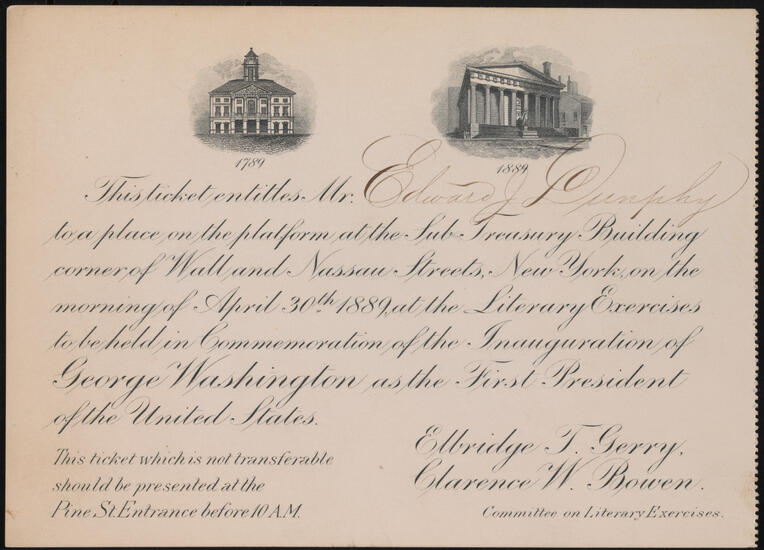 1789
1889
This ticket entitles Mr. Edward J. Dunphy
to a place on the platform at the Sub Treasury Building
corner of Wall and Nassau Streets, New York, on the
morning of April 30th 1889, at the Literary Exercises
to be held in Commemoration of the Inauguration of
George Washington as the First President
of the United States.
This ticket which is not transferable
should be presented at the
Pine St. Entrance before 10 A.M.
Elbridge T. Gerry,
Clarence W. Bowen.
Committee on Literary Exercises.